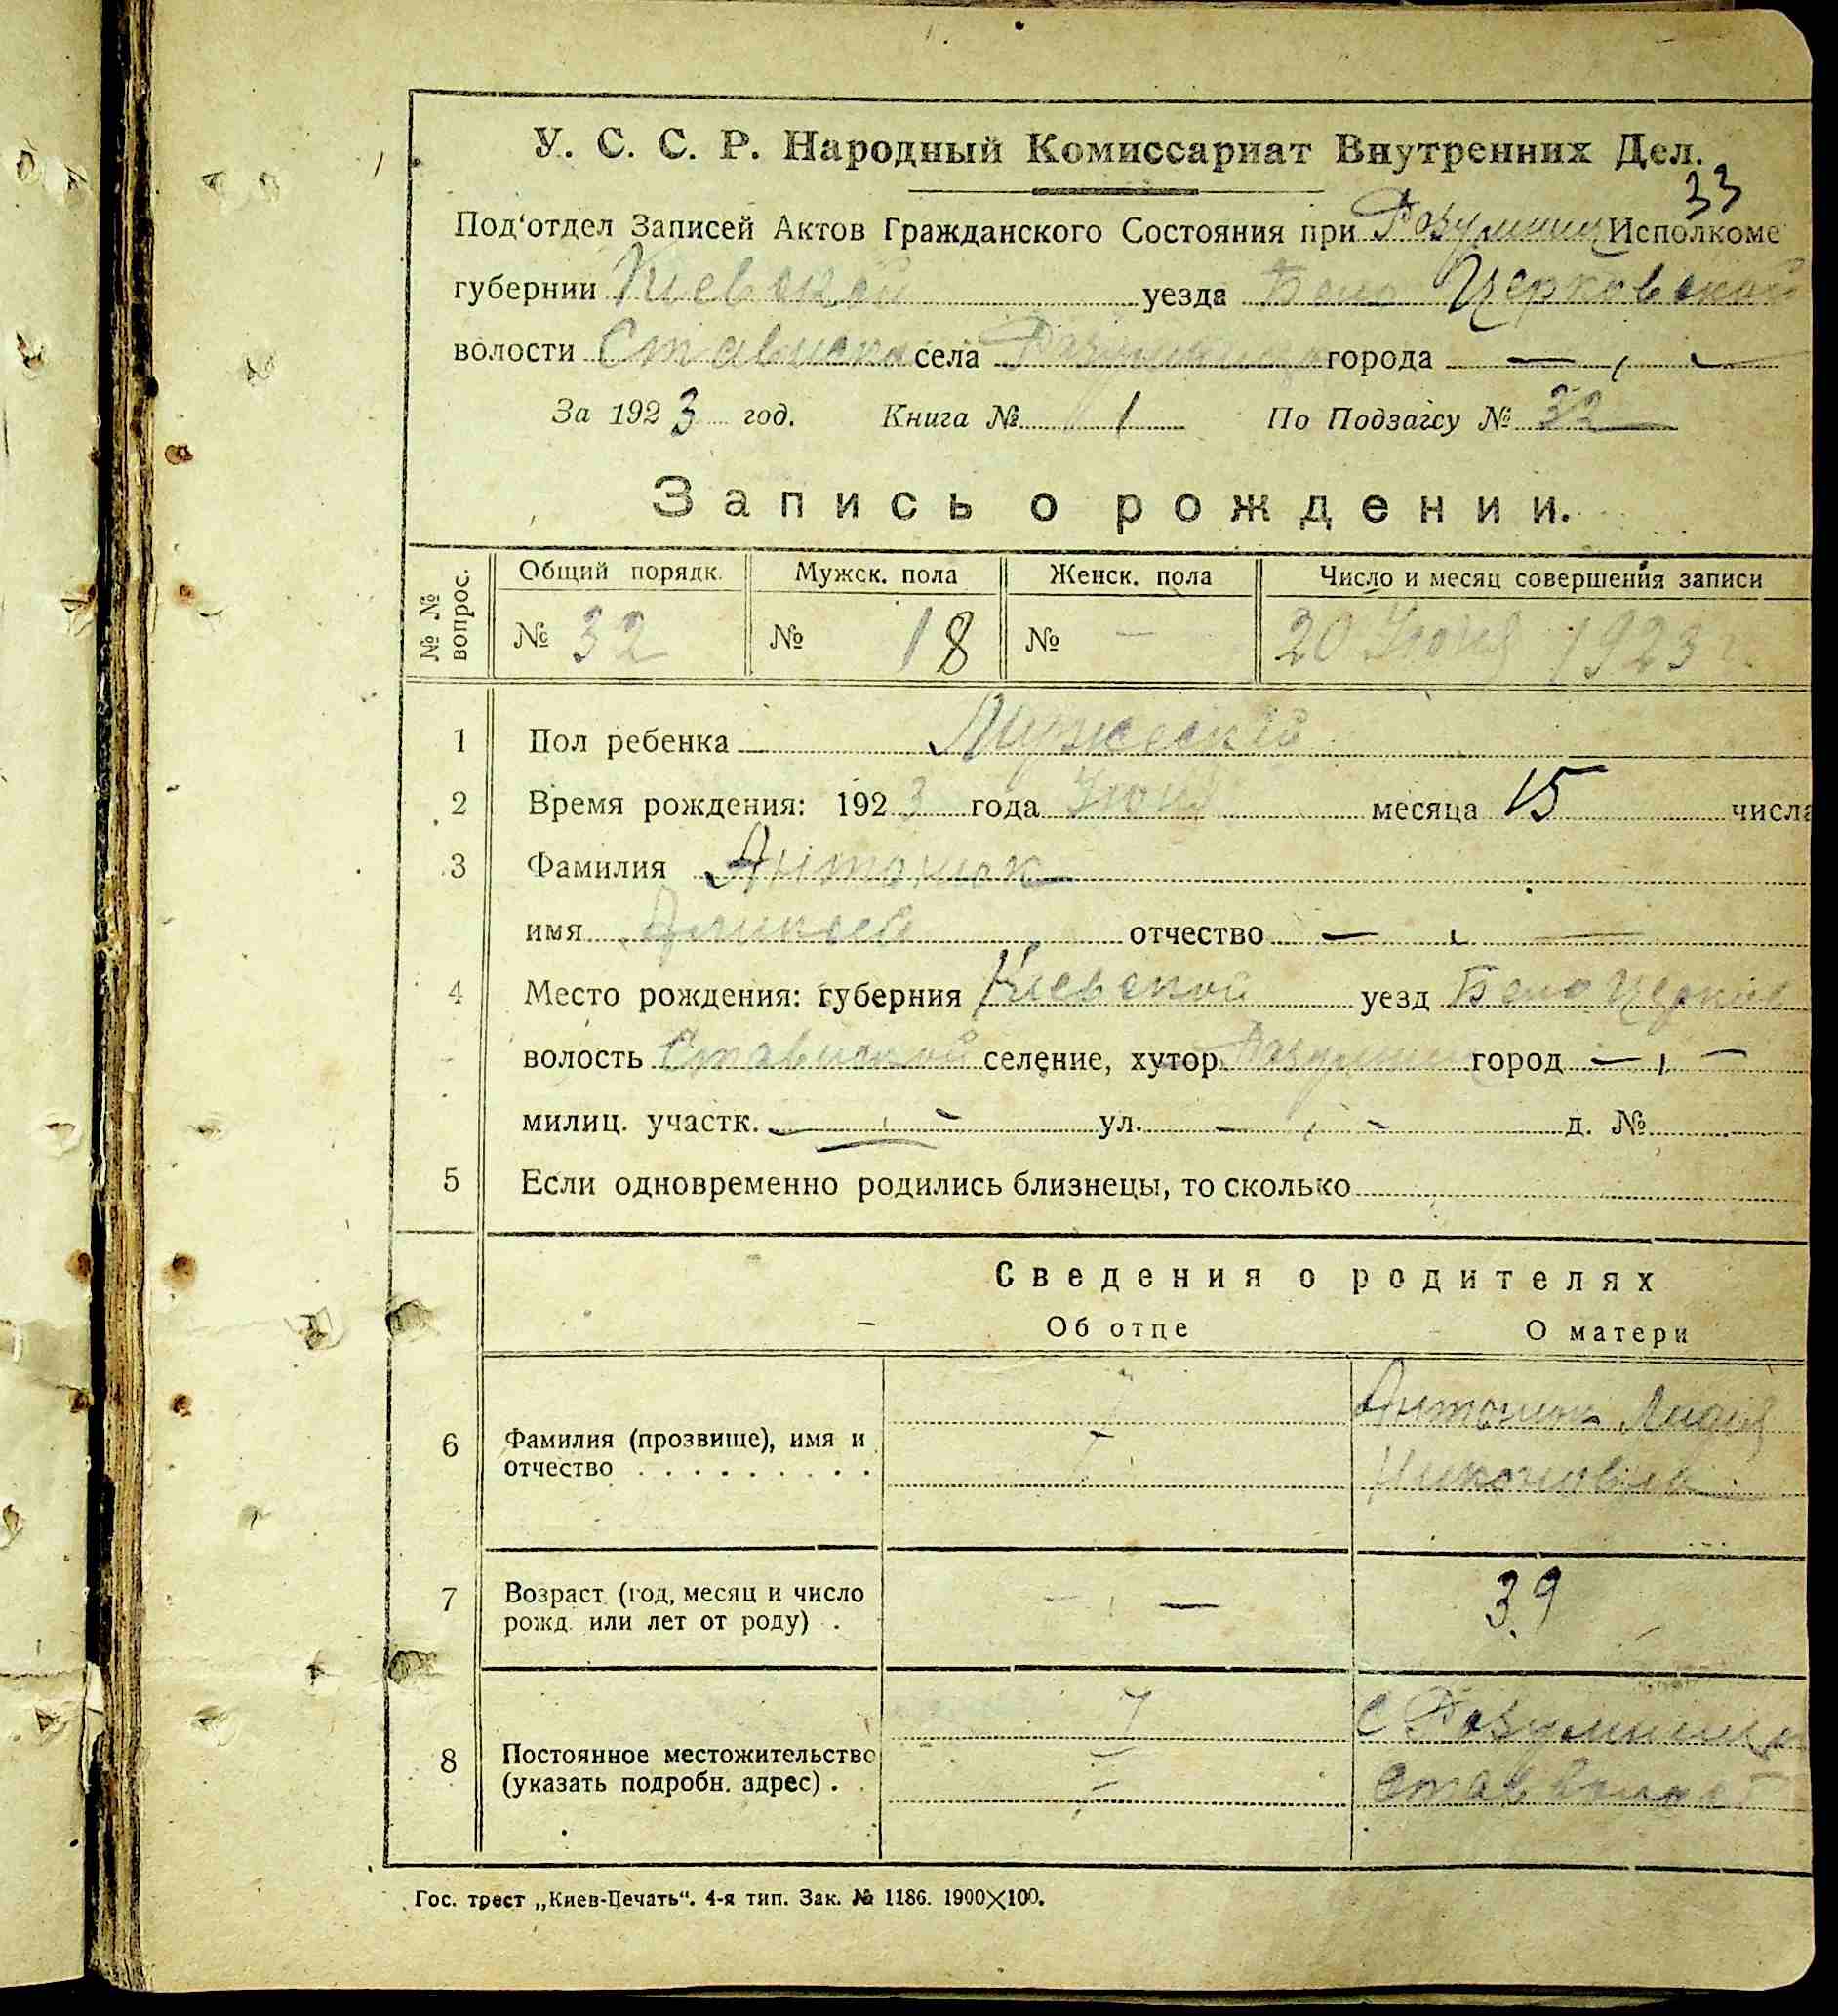 У. С. С. Р. Народный Комиссариат Внутренних Дел.
33
Под'отдел Записей Актов Гражданского Состояния при Разумниц Исполкоме
губернии Киевской уезда Бело Церковской
волости Ставиской села города —
За 1923 год. Книга № 1 По Подзагсу № 32
Запись о рождении.
№ № вопрос. Общий порядк. Мужск. пола Женск. пола Число и месяц совершения записи
№ 32 № 18 № — 20 Июня 1923 г.
1 Пол ребенка Мужеский
2 Время рождения: 1923 года Июня месяца 15 числа
3 Фамилия Антонюк
имя отчество —
4 Место рождения: губерния Киевской уезд Бело Церков
волость Ставиской селение, хутор Разумниц город —
милиц. участк. — ул. — д. №
5 Если одновременно родились близнецы, то сколько
Сведения о родителях
Об отце О матери
Антонюк Лидия
6 Фамилия (прозвище), имя и
отчество
7 Возраст (год, месяц и число — 39
рожд. или лет от роду)
С Разумницы
8 Постоянное местожительство
(указать подробн. адрес) Став
Гос. трест „Киев-Печать“. 4-я тип. Зак. № 1186. 1900×100.